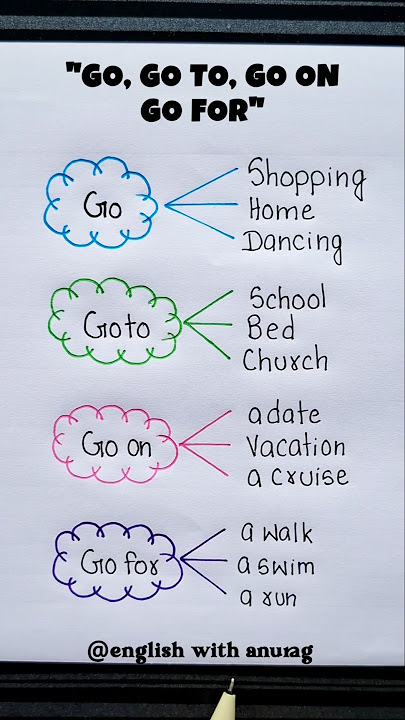 "GO, GO TO, GO ON
GO FOR"
Go
Shopping
Home
Dancing
Go to
School
Bed
Church
Go on
a date
Vacation
a Cruise
Go for
a walk
a swim
a run
@english with anurag